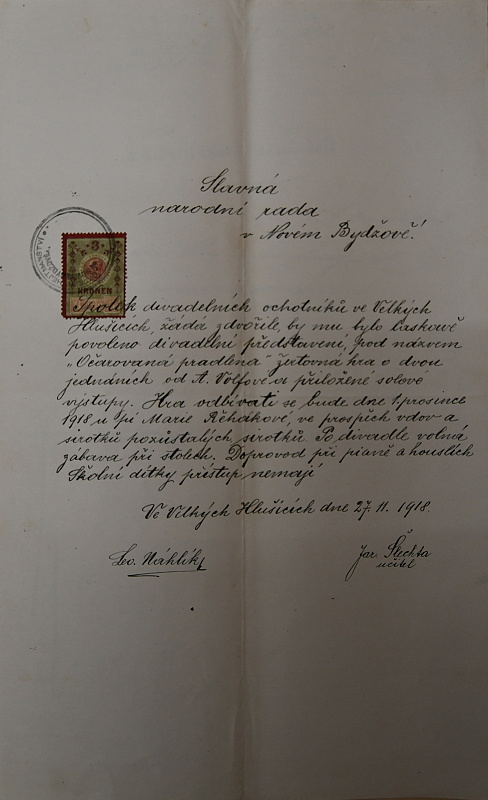 Slavná
národní rada
v Novém Bydžově!
3
KRONEN
Spolek divadelních ochotníků ve Velkých
Hlušicích, žádá zdvořile, by mu bylo laskavě
povoleno divadelní představení, pod názvem
„Očarovaná pradlena" žertovná hra o dvou
jednáních od A. Volfové a přiložené solové
výstupy. Hra odbývati se bude dne 1. prosince
1918 u pí Marie Řehákové, ve prospěch vdov a
sirotků pozůstalých sirotků Po divadle volná
zábava při stolech. Doprovod při pianě a houslích
Školní dítky přístup nemají
Ve Velkých Hlušicích dne 27. 11. 1918.
Leo. Náhlík
Jar. Šlechta
učitel